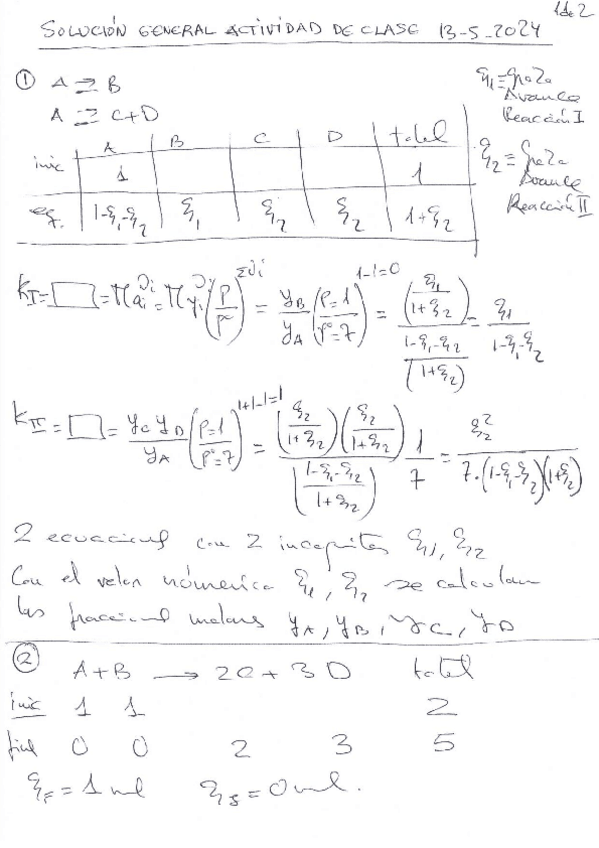 1 de 2
SOLUCIÓN GENERAL ACTIVIDAD DE CLASE 13-5-2024
① A ⇌ B
A ⇌ C+D
ξ1 = Grado Avance Reacción I
ξ2 = Grado Avance Reacción II
A B C D total
inic 1 1
eq. 1-ξ1-ξ2 ξ1 ξ2 ξ2 1+ξ2
KI = □ = Π ai^νi = Π yi^νi (P/P°)^Σνi = yB/yA (P=1/P°=7)^1-1=0 = (ξ1/(1+ξ2))/((1-ξ1-ξ2)/(1+ξ2)) = ξ1/(1-ξ1-ξ2)
KII = □ = yC yD/yA (P=1/P°=7)^1+1-1=1 = (ξ2/(1+ξ2))(ξ2/(1+ξ2))/((1-ξ1-ξ2)/(1+ξ2)) 1/7 = ξ2²/(7·(1-ξ1-ξ2)(1+ξ2))
2 ecuaciones con 2 incognitas ξ1, ξ2
Con el valor númerico ξ1, ξ2 se calculan
las fracciones molares yA, yB, yC, yD
② A+B → 2C + 3D total
inic 1 1 2
final 0 0 2 3 5
ξF = 1 mol ξS = 0 mol.